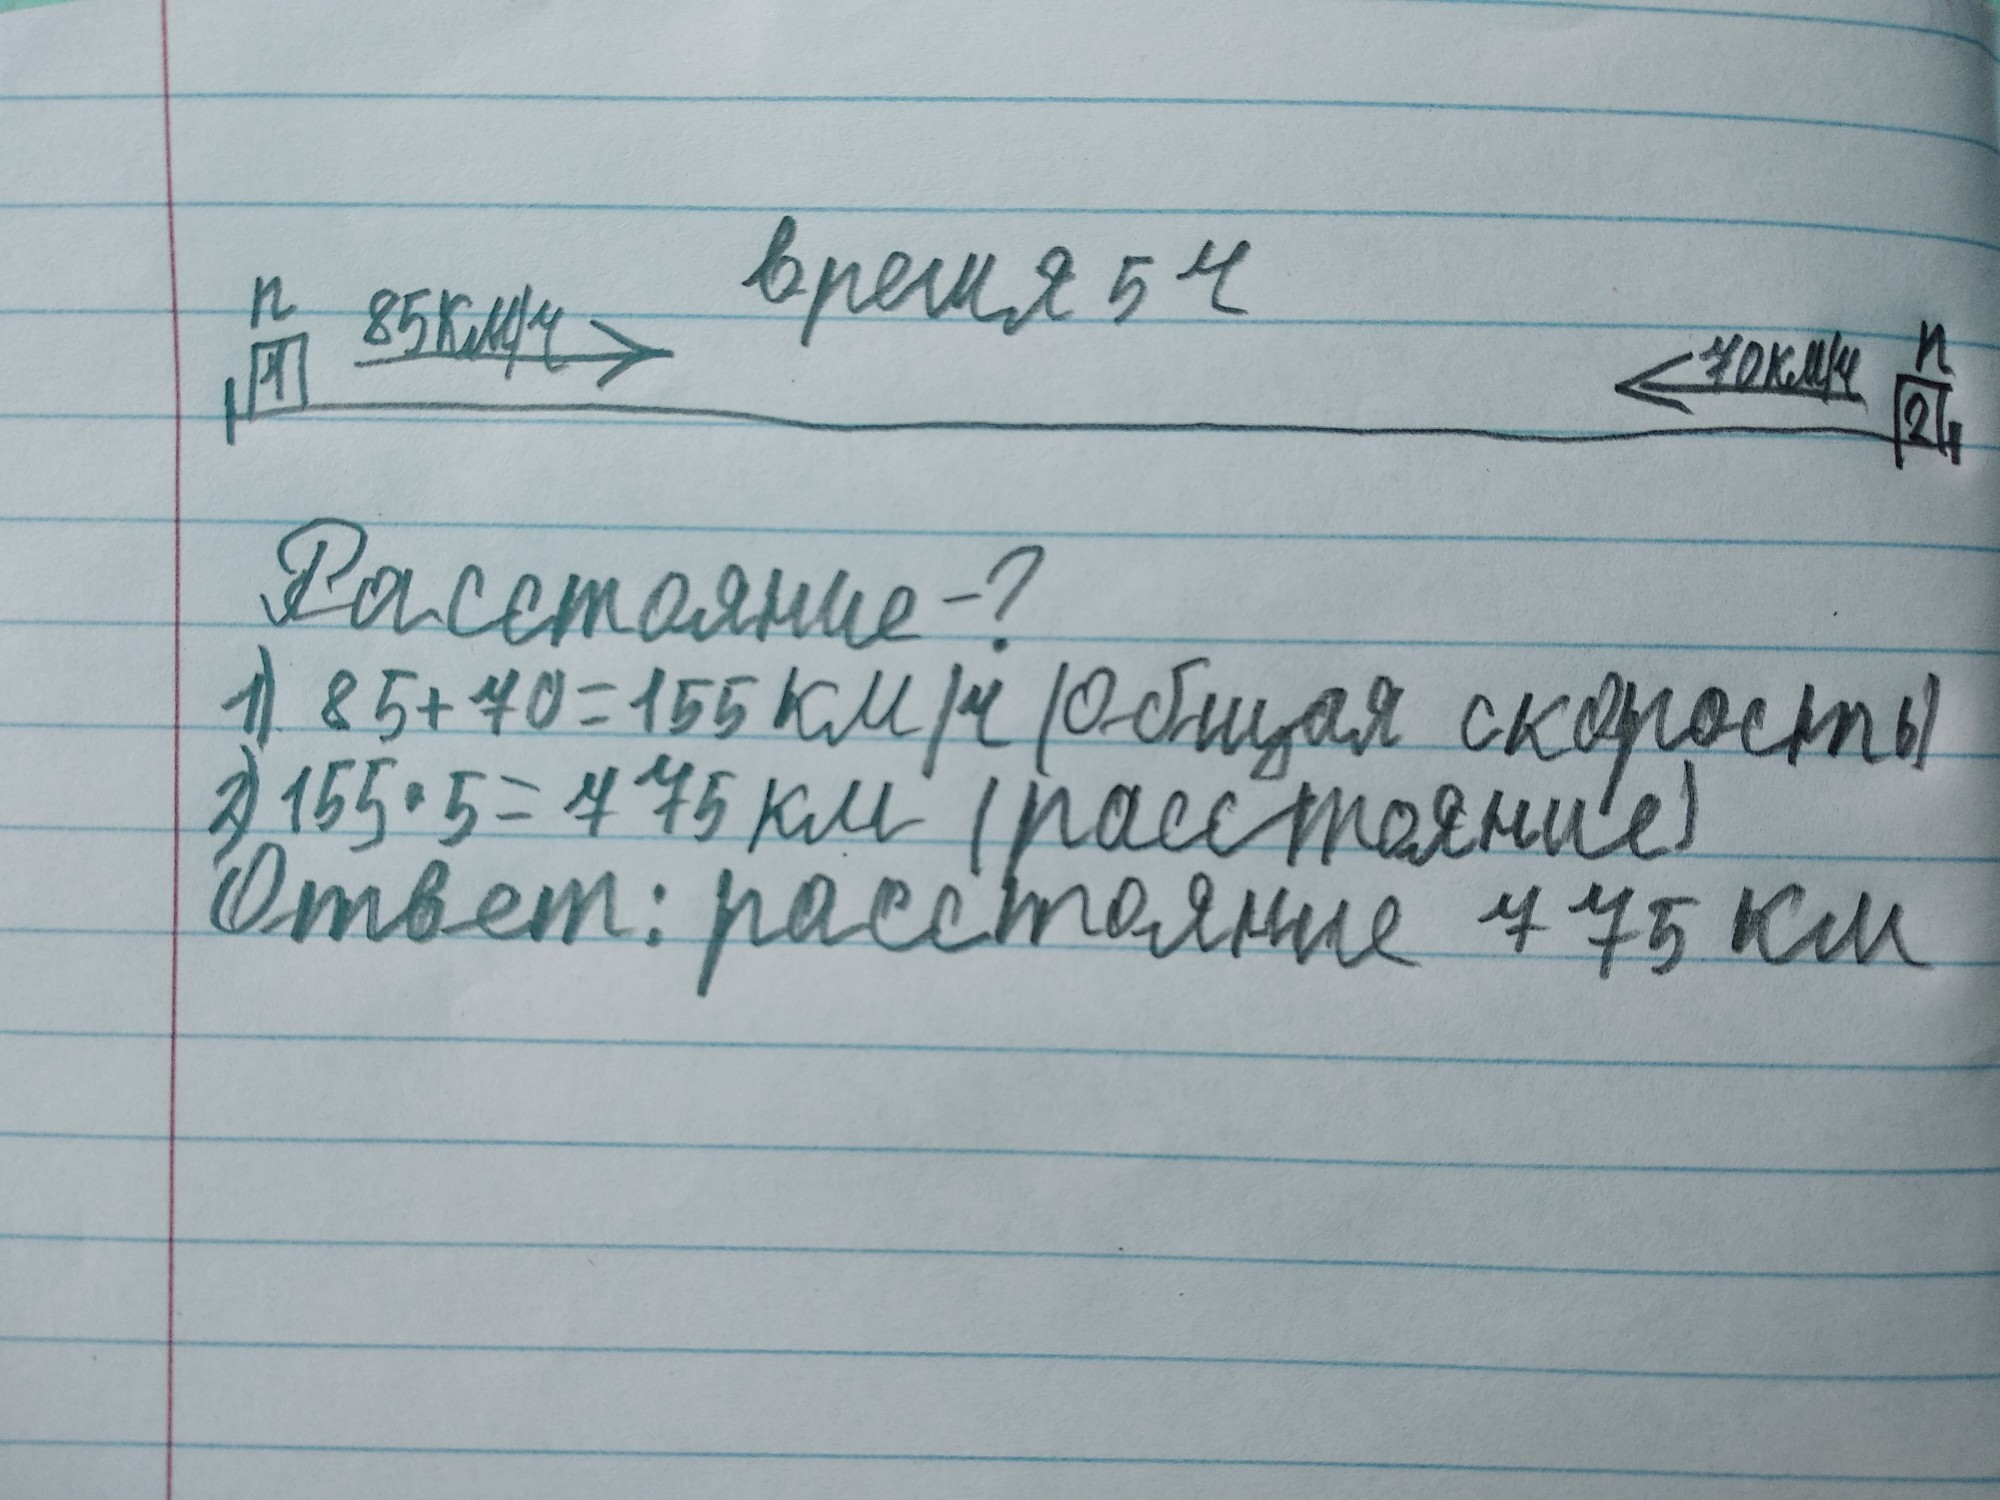 время 5 ч
п 85км/ч 70км/ч п
1 2
Расстояние-?
1) 85+70=155км/ч (Общая скорость)
2) 155·5=775км (расстояние)
Ответ: расстояние 775км